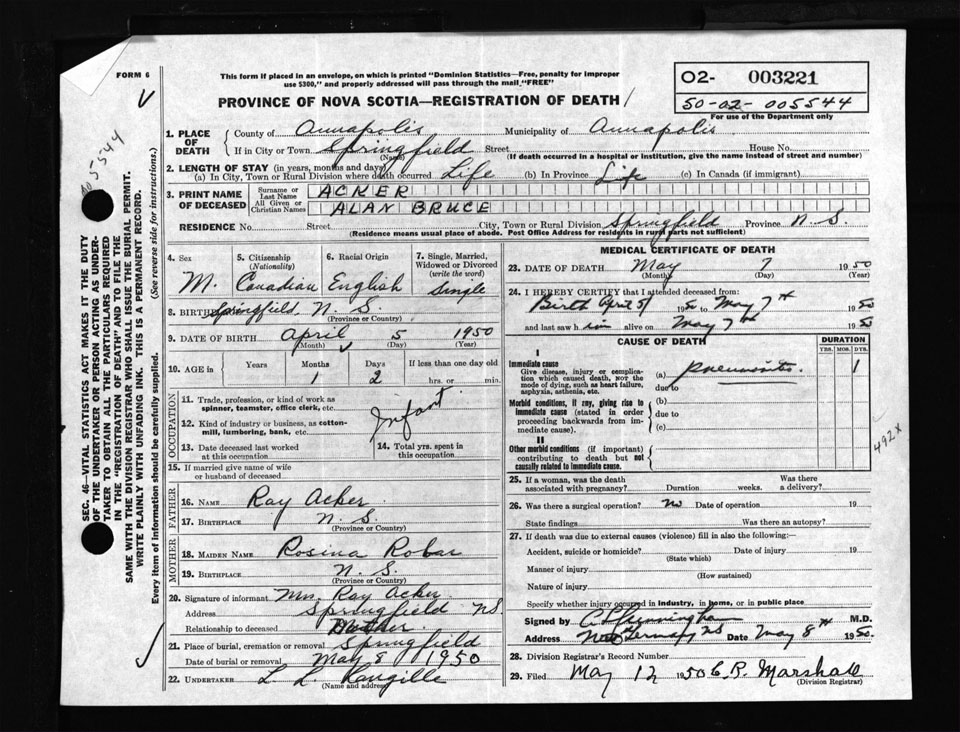 FORM 6
This form if placed in an envelope, on which is printed "Dominion Statistics—Free, penalty for improper
use $300," and properly addressed will pass through the mail "FREE"
PROVINCE OF NOVA SCOTIA—REGISTRATION OF DEATH
02- 003221
50-02-005544
For use of the Department only
005544
SEC. 46—VITAL STATISTICS ACT MAKES IT THE DUTY
OF THE UNDERTAKER OR PERSON ACTING AS UNDER-
TAKER TO OBTAIN ALL THE PARTICULARS REQUIRED
IN THE "REGISTRATION OF DEATH" AND TO FILE THE
SAME WITH THE DIVISION REGISTRAR WHO SHALL ISSUE THE BURIAL PERMIT.
WRITE PLAINLY WITH UNFADING INK. THIS IS A PERMANENT RECORD.
Every item of information should be carefully supplied. (See reverse side for instructions.)
1. PLACE OF DEATH
County of Annapolis Municipality of Annapolis
If in City or Town Springfield Street House No.
(Name) (If death occurred in a hospital or institution, give the name instead of street and number)
2. LENGTH OF STAY (in years, months and days)
(a) In City, Town or Rural Division where death occurred Life (b) In Province Life (c) In Canada (if immigrant)
3. PRINT NAME OF DECEASED
Surname or Last Name ACKER
All Given or Christian Names ALAN BRUCE
RESIDENCE No. Street City, Town or Rural Division Springfield Province N. S.
(Residence means usual place of abode. Post Office Address for residents in rural parts not sufficient)
4. Sex 5. Citizenship (Nationality) 6. Racial Origin 7. Single, Married, Widowed or Divorced (write the word)
M. Canadian English Single
8. BIRTHPLACE Springfield, N. S.
(Province or Country)
9. DATE OF BIRTH April 5 1950
(Month) (Day) (Year)
10. AGE in Years Months Days If less than one day old
1 2 hrs. or min.
OCCUPATION
11. Trade, profession or kind of work as
spinner, teamster, office clerk, etc.
Infant
12. Kind of industry or business, as cotton-
mill, lumbering, bank, etc.
13. Date deceased last worked
at this occupation
14. Total yrs. spent in
this occupation
15. If married give name of wife
or husband of deceased
FATHER
16. NAME Ray Acker
17. BIRTHPLACE N. S.
(Province or Country)
MOTHER
18. MAIDEN NAME Rosina Robar
19. BIRTHPLACE N. S.
(Province or Country)
20. Signature of informant Mrs. Ray Acker
Address Springfield NS
Relationship to deceased Mother
21. Place of burial, cremation or removal Springfield
Date of burial or removal May 8 1950
22. UNDERTAKER L. L.
(Name and address)
MEDICAL CERTIFICATE OF DEATH
23. DATE OF DEATH May 7 1950
(Month) (Day) (Year)
24. I HEREBY CERTIFY that I attended deceased from:
Birth April 5 1950 to May 7th 1950
and last saw him alive on May 7th 1950
CAUSE OF DEATH
DURATION
YRS. MOS. DYS.
I
Immediate cause
Give disease, injury or complica-
tion which caused death, NOT the
mode of dying, such as heart failure,
asphyxia, asthenia, etc.
(a) pneumonitis 1
due to
Morbid conditions, if any, giving rise to
immediate cause (stated in order
proceeding backwards from im-
mediate cause).
(b)
due to
(c)
II
Other morbid conditions (if important)
contributing to death but not
causally related to immediate cause.
492x
25. If a woman, was the death
associated with pregnancy? Duration weeks. Was there
a delivery?
26. Was there a surgical operation? no Date of operation 19
State findings Was there an autopsy?
27. If death was due to external causes (violence) fill in also the following:—
Accident, suicide or homicide? Date of injury 19
(State which)
Manner of injury
(How sustained)
Nature of injury
Specify whether injury occured in industry, in home, or in public place
Signed by M.D.
Address New Germany NS Date May 8th 1950.
28. Division Registrar's Record Number
29. Filed May 12 1950 C. R. Marshall
(Division Registrar)